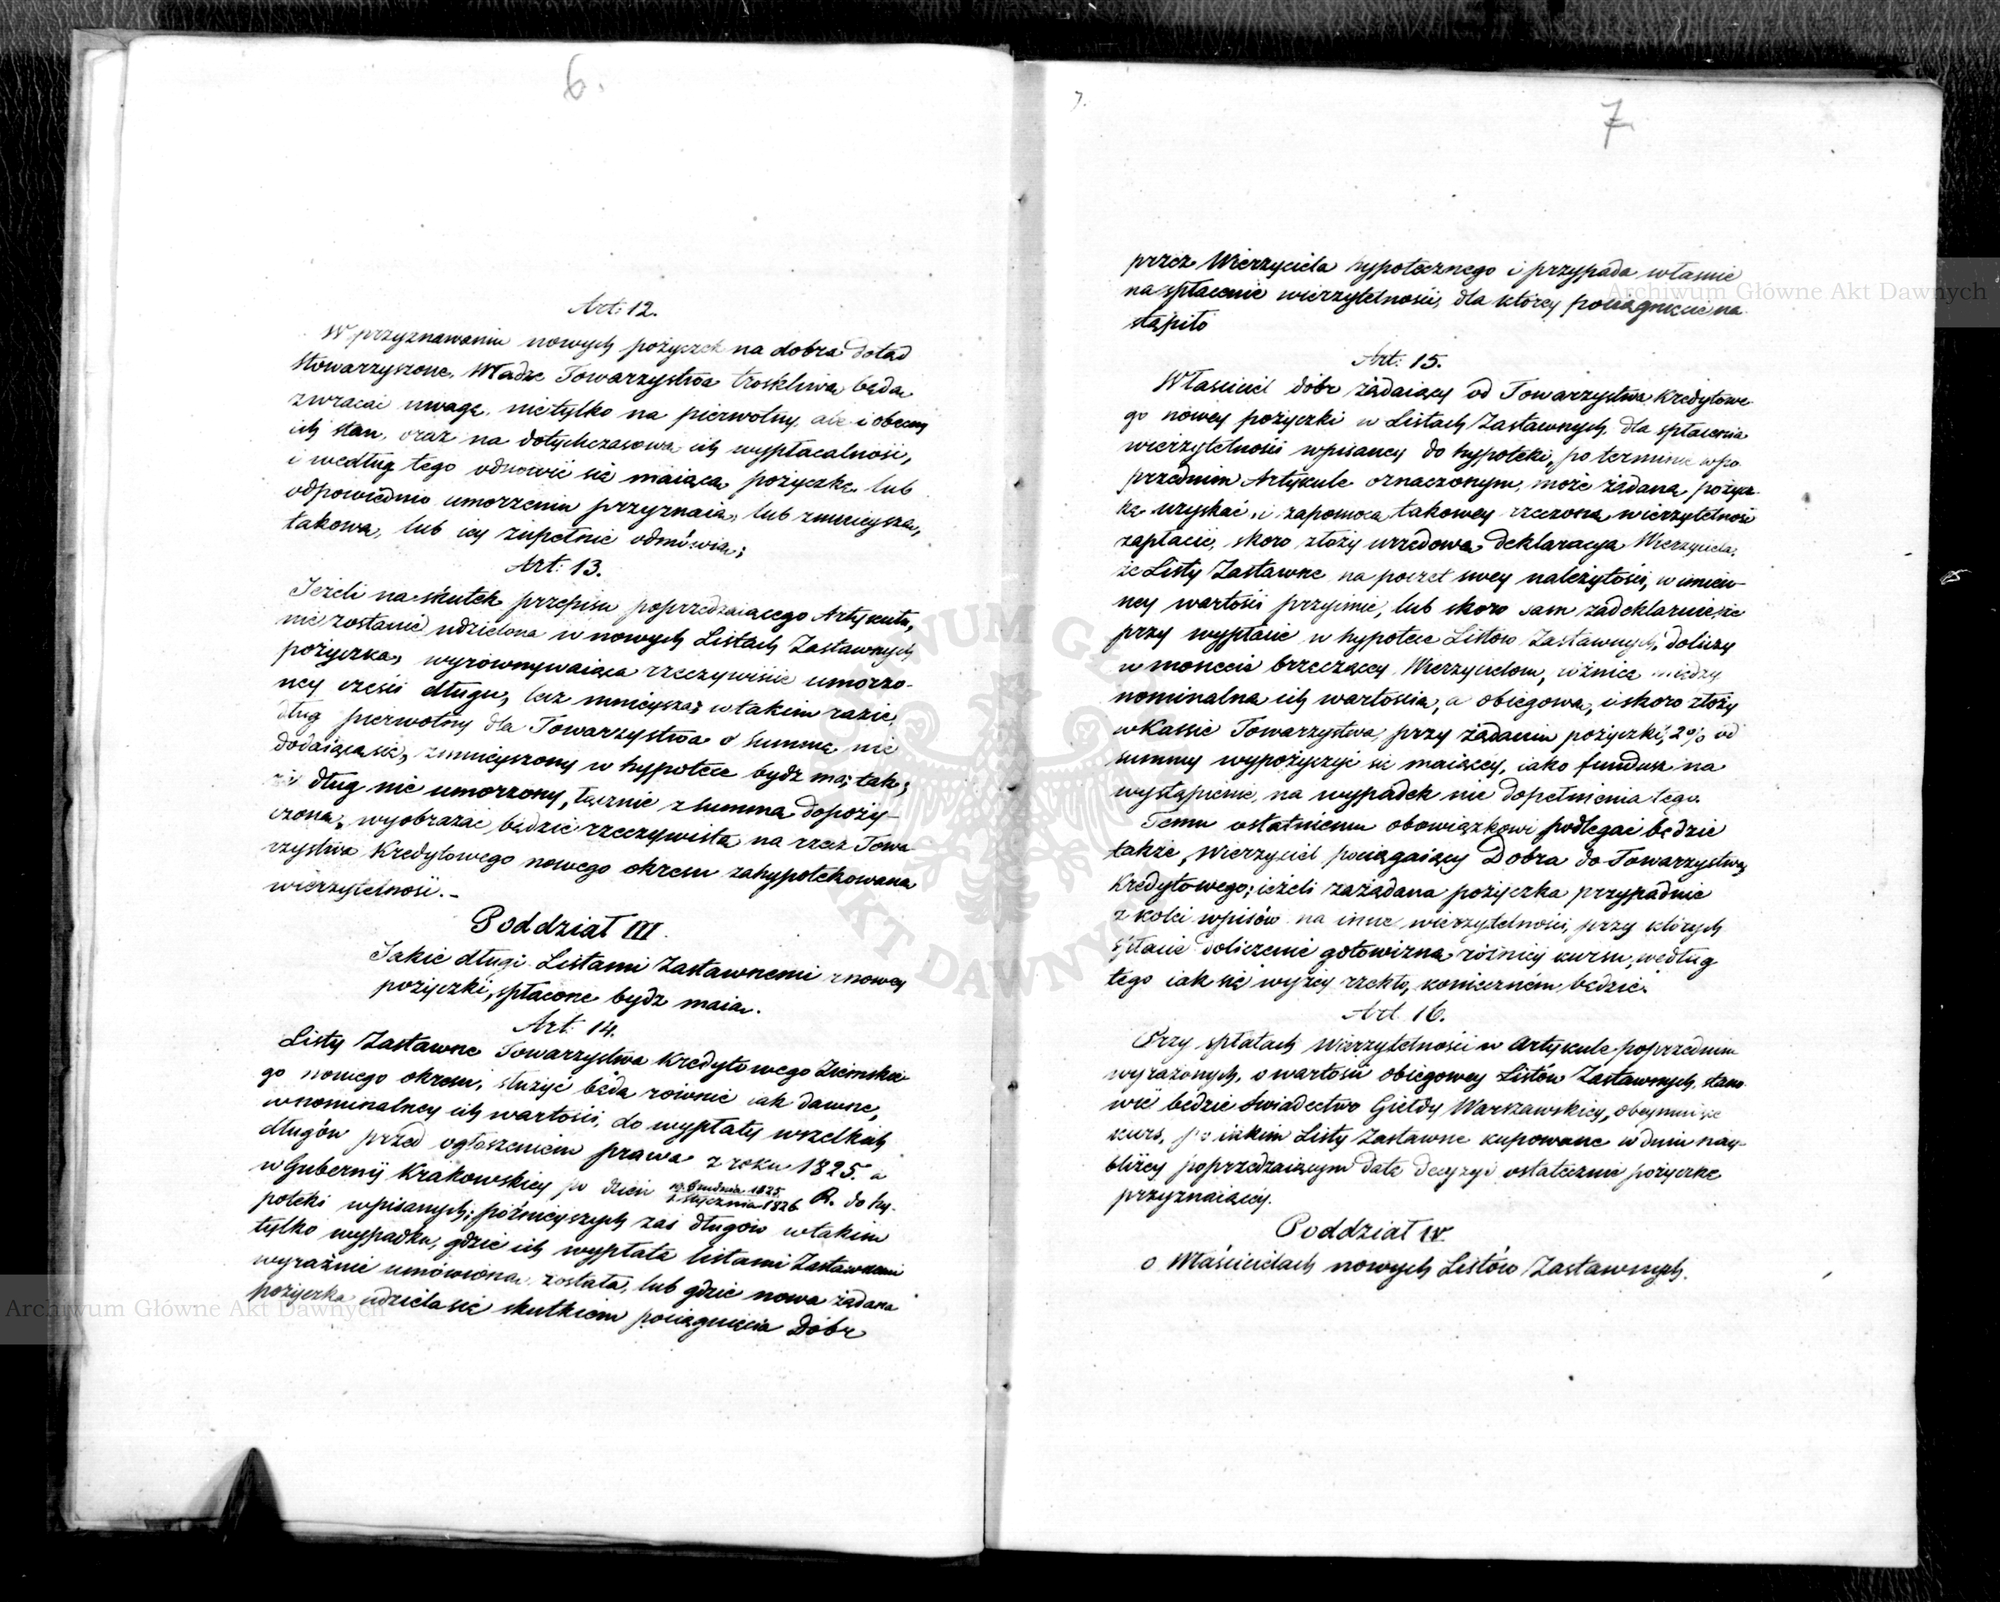 6.
Art: 12.
W przyznawaniu nowych pożyczek na dobra dotąd
stowarzyszone, Władze Towarzystwa troskliwą będą
zwracać uwagę, nietylko na pierwotny, ale i obecny
ich stan, oraz na dotychczasową ich wypłacalność,
i według tego odnowić się maiącą pożyczkę, lub
odpowiednio umorzeniu przyznaią, lub zmnieyszą,
takową, lub iey zupełnie odmówią;
Art: 13.
Jeżeli na skutek przepisu poprzedzaiącego Artykułu,
nie zostanie udzielona w nowych Listach Zastawnych
pożyczka, wyrównywaiąca rzeczywiście umorzo-
ney części długu, lecz mnieysza; w takim razie,
dług pierwotny dla Towarzystwa o Summę nie
dodaiącą się, zmnieyszony w hypotece bydź ma; tak;
dług nie umorzony, łącznie z summą dopoży-
czoną, wyobrażać będzie rzeczywistą na rzecz Towa
rzystwa Kredytowego nowego okresu zahypotekowaną
wierzytelność. –
Poddział III.
Jakie długi Listami Zastawnemi z nowey
pożyczki, spłacone bydź maią.
Art: 14.
Listy Zastawne Towarzystwa Kredytowego Ziemskie
go nowego okresu, służyć będą równie iak dawne,
w nominalney ich wartości, do wypłaty wszelkich
długów przed ogłoszeniem prawa z roku 1825. a
w Gubernij Krakowskiey po dzień 19. Grudnia 1825 / 1. Stycznia 1826 R. do hy-
poteki wpisanych; późnieyszych zaś długów w takim
tylko wypadku, gdzie ich wypłata listami Zastawnemi
wyraźnie umówioną została, lub gdzie nowa żądana
pożyczka udziela się skutkiem pociągnięcia Dóbr
7.
7
przez Wierzyciela hypotecznego i przypada właśnie
na spłacenie wierzytelności, dla którey pociągnięcie na
stąpiło
Art: 15.
Właściciel dóbr żądaiący od Towarzystwa Kredytowe
go nowey pożyczki w Listach Zastawnych, dla spłacenia
wierzytelności wpisaney do hypoteki, po terminie w po
przednim Artykule oznaczonym, może żądaną pożycz-
kę uzyskać, i zapomocą takowey rzeczoną wierzytelność
zapłacić, skoro złoży urzędową deklaracyą Wierzyciela;
że Listy Zastawne na poczet swey należytości, w imien-
ney wartości przyimie, lub skoro sam zadeklaruie, że
przy wypłacie w hypotece Listów Zastawnych, doliczy
w monecie brzęczącey Wierzycielom, różnicę między
nominalną ich wartością, a obiegową, i skoro złoży
w Kassie Towarzystwa, przy żądaniu pożyczki, 2% od
summy wypożyczyć się maiącey, iako fundusz na
wystąpienie, na wypadek nie dopełnienia tego.
Temu ostatniemu obowiązkowi podlegać będzie
także, Wierzyciel pociągaiący Dobra do Towarzystwa
Kredytowego; ieżeli zażądana pożyczka przypadnie
z kolei wpisów na inne wierzytelności, przy których
spłacie doliczenie gotowizną różnicy kursu, według
tego iak się wyżey rzekło, koniecznem będzie.
Art. 16.
Przy spłatach Wierzytelności w Artykule poprzednim
wyrażonych, o wartości obiegowey Listów Zastawnych, stano
wić będzie świadectwo Giełdy Warszawskiey, obeymuiące
kurs, po iakim Listy Zastawne kupowane w dniu nay-
bliżey poprzedzaiącym datę decyzyi ostatecznie pożyczkę
przyznaiącey.
Poddział IV.
o Właścicielach nowych Listów Zastawnych.
Archiwum Główne Akt Dawnych
Archiwum Główne Akt Dawnych